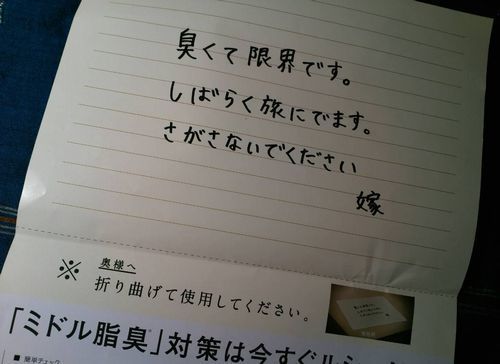 臭くて限界です。
しばらく旅にでます。
さがさないでください
嫁
※
奥様へ
折り曲げて使用してください。
「ミドル脂臭」対策は今すぐル
■ 簡単チェック